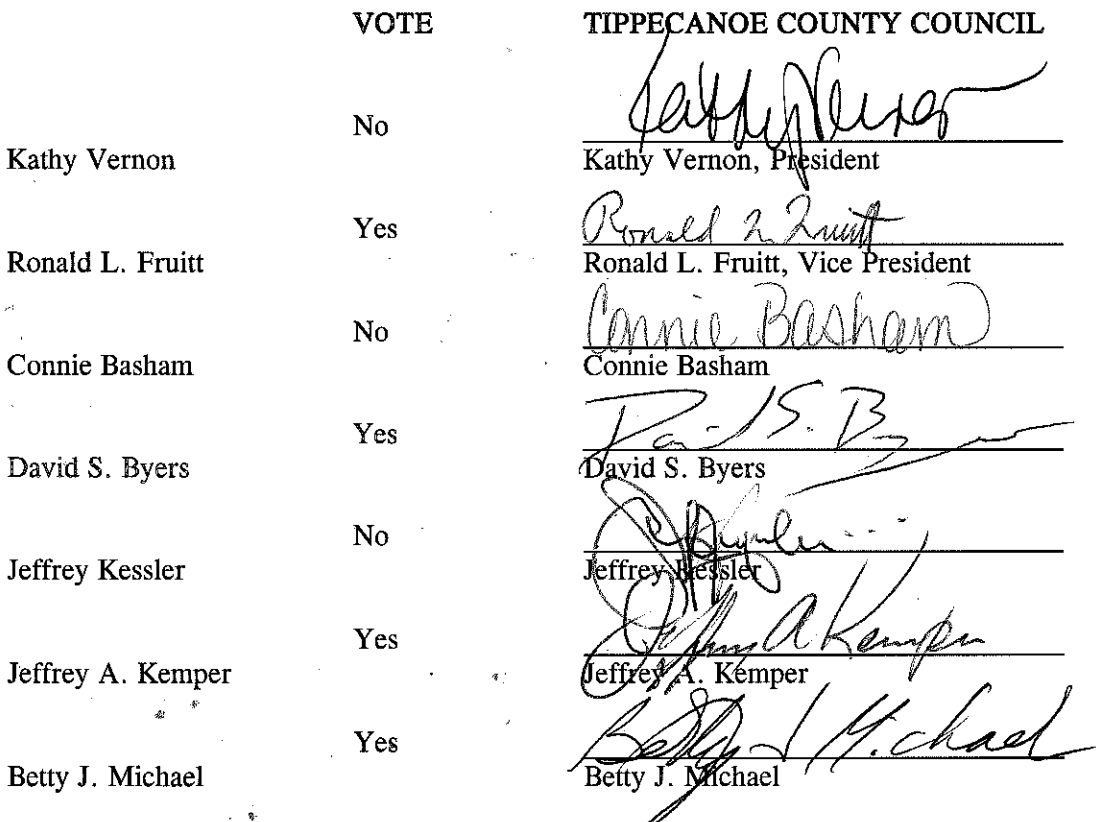 VOTE TIPPECANOE COUNTY COUNCIL
Kathy Vernon
No
Kathy Vernon Kathy Vernon, President
Yes Ronald L. Fruitt
Ronald L. Fruitt Ronald L. Fruitt, Vice President
No Connie Basham
Connie Basham Connie Basham
Yes David S. Byers
David S. Byers David S. Byers
No
Jeffrey Kessler Jeffrey Kessler
Yes Jeffrey A Kemper
Jeffrey A. Kemper Jeffrey A. Kemper
Yes Betty J Michael
Betty J. Michael Betty J. Michael